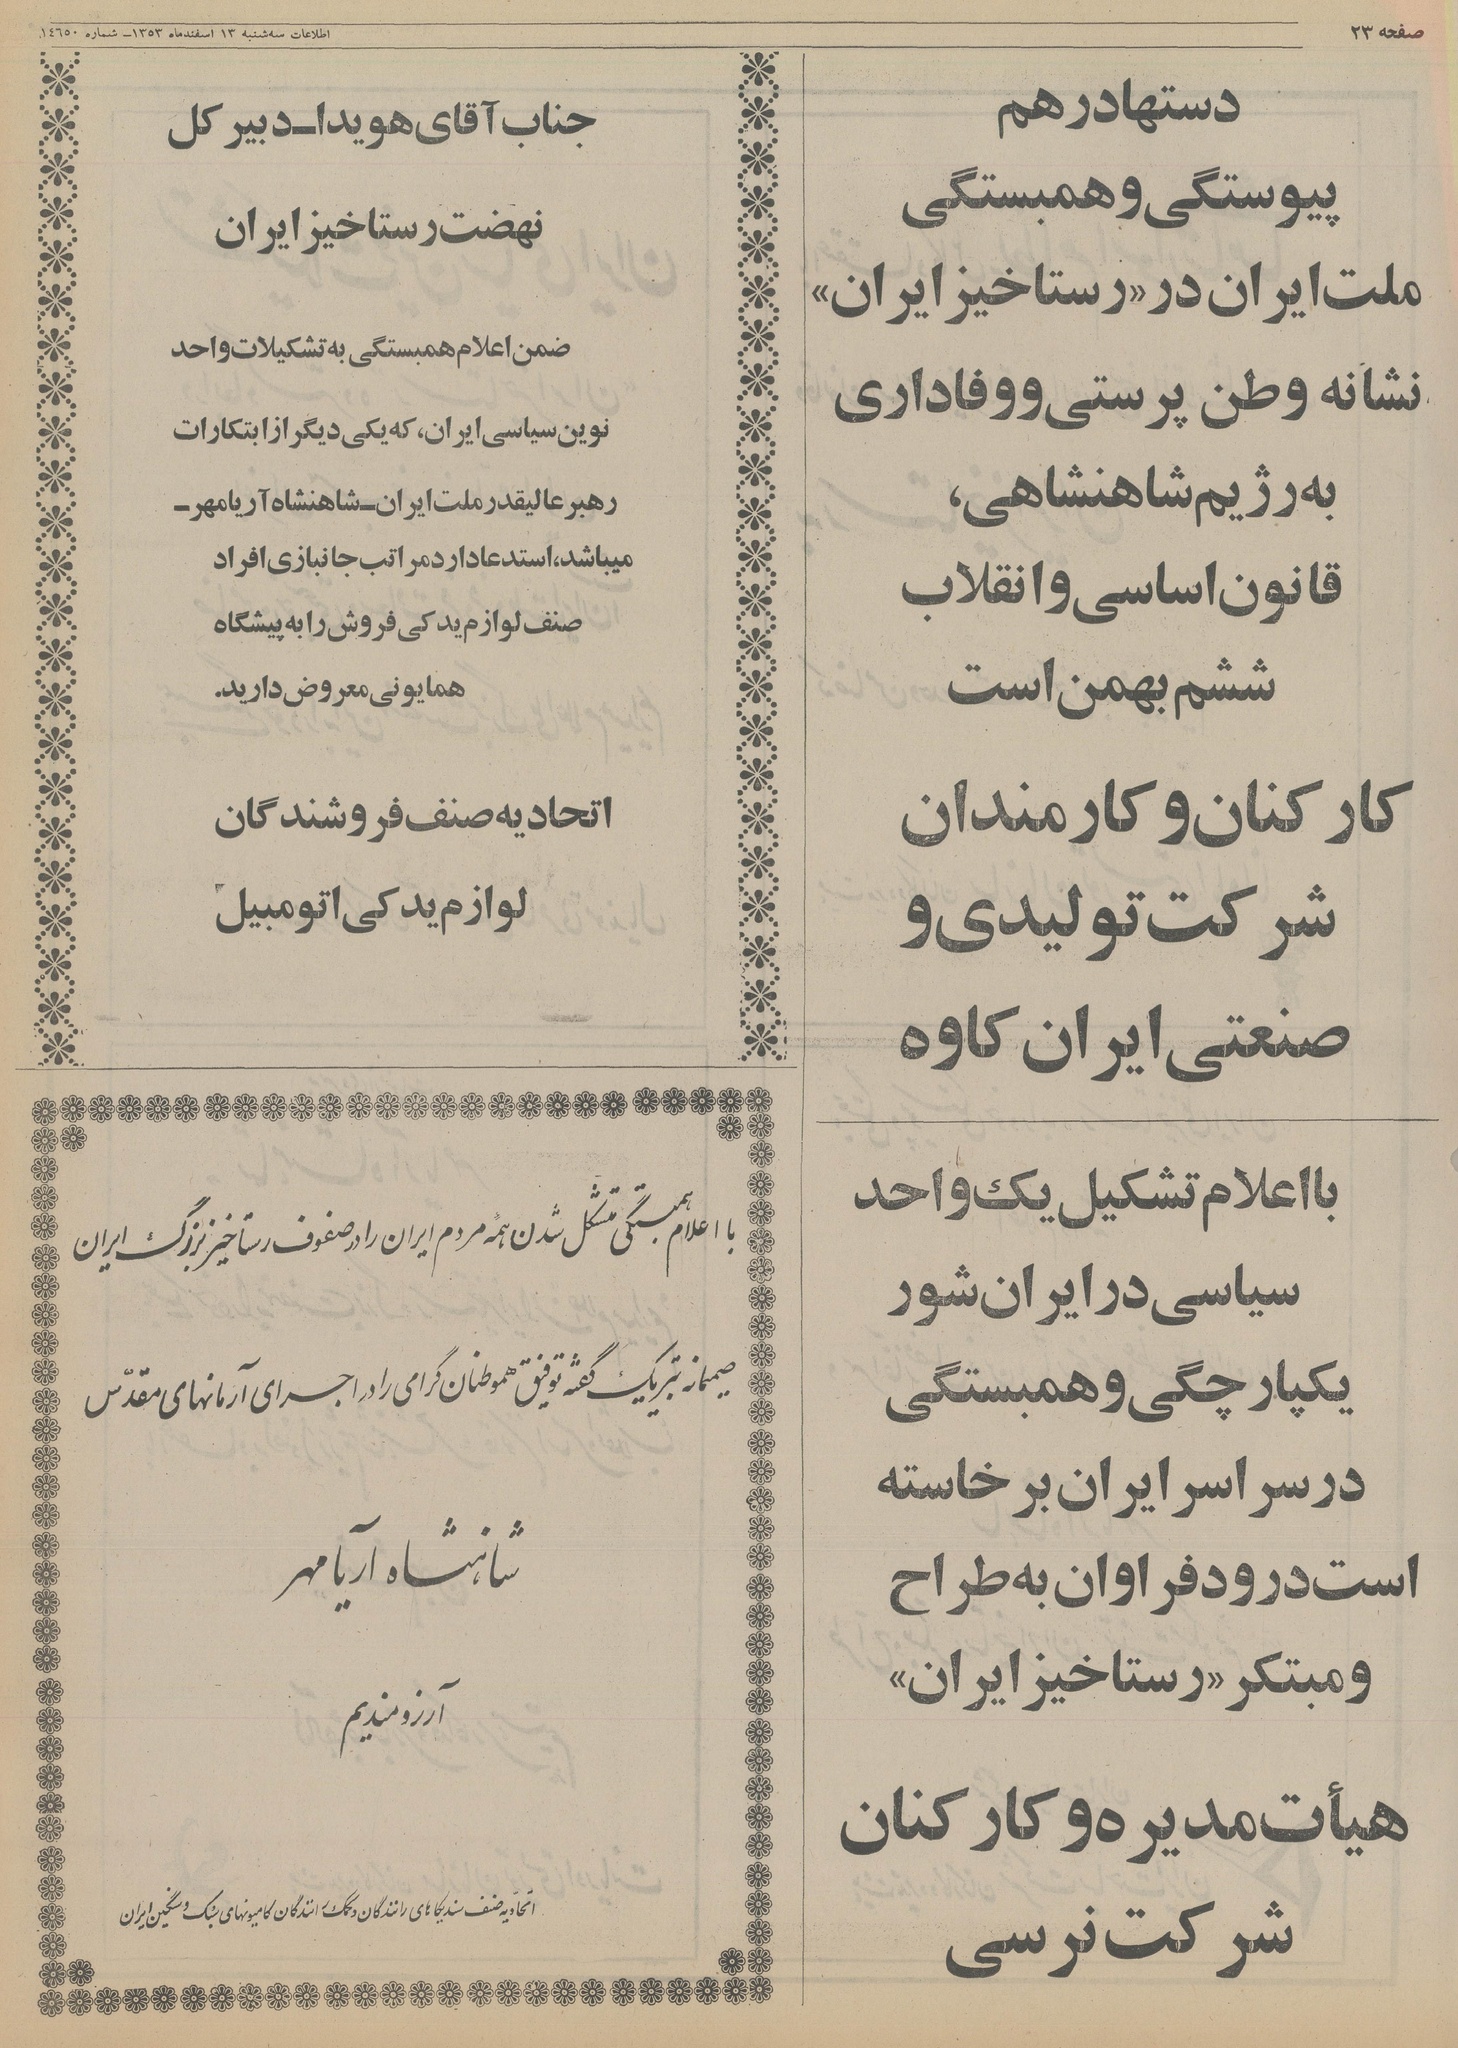 صفحه ۲۳
اطلاعات سه‌شنبه ۱۳ اسفندماه ۱۳۵۳ـ شماره ۱٤٦٥۰
دستها در هم
پیوستگی و همبستگی
ملت ایران در «رستاخیز ایران»
نشانه وطن پرستی و وفاداری
به رژیم شاهنشاهی،
قانون اساسی و انقلاب
ششم بهمن است
کارکنان و کارمندان
شرکت تولیدی و
صنعتی ایران کاوه
با اعلام تشکیل یک واحد
سیاسی در ایران شور
یکپارچگی و همبستگی
در سراسر ایران برخاسته
است درود فراوان به طراح
و مبتکر «رستاخیز ایران»
هیأت مدیره و کارکنان
شرکت نرسی
جناب آقای هویدا ـ دبیر کل
نهضت رستاخیز ایران
ضمن اعلام همبستگی به تشکیلات واحد
نوین سیاسی ایران، که یکی دیگر از ابتکارات
رهبر عالیقدر ملت ایران ـ شاهنشاه آریامهر ـ
میباشد، استدعا دارد مراتب جانبازی افراد
صنف لوازم یدکی فروش را به پیشگاه
همایونی معروض دارید.
اتحادیه صنف فروشندگان
لوازم یدکی اتومبیل
با اعلام همبستگی متشکل شدن همه مردم ایران را در صفوف رستاخیز بزرگ ایران
صمیمانه تبریک گفته توفیق هموطنان گرامی را در اجرای آرمانهای مقدّس
شاهنشاه آریامهر
آرزومندیم
اتحادیه صنف سندیکاهای رانندگان و کمک رانندگان کامیونهای سبک و سنگین ایران